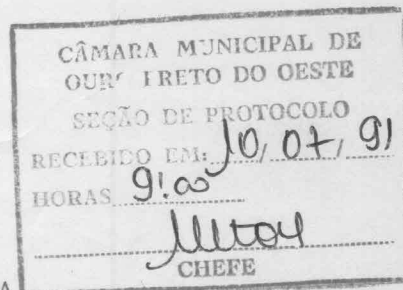 CÂMARA MUNICIPAL DE
OURO PRETO DO OESTE
SEÇÃO DE PROTOCOLO
RECEBIDO EM: 10, 07, 91
HORAS 9:00
CHEFE
A